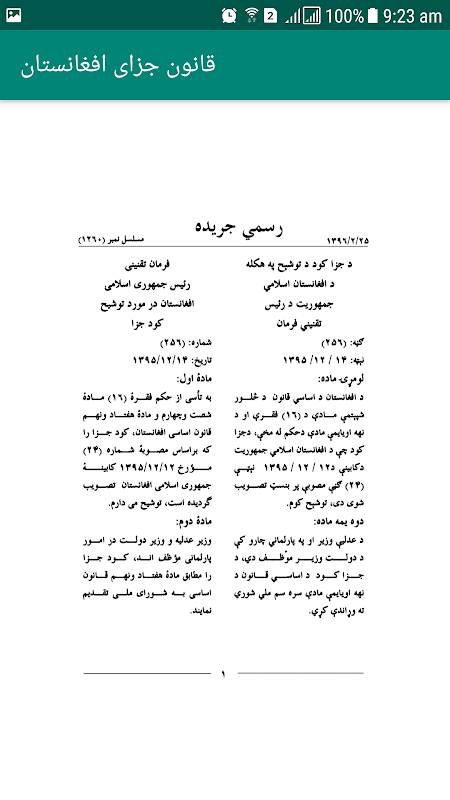 100% 9:23 am
قانون جزای افغانستان
رسمي جريده
۱۳۹۶/۲/۲۵
مسلسل نمبر (۱۲۶۰)
د جزا کود د توشېح په هکله
د افغانستان اسلامي
جمهوريت د رئيس
تقنيني فرمان
ګڼه: (۲۵۶)
نېټه: ۱۴ / ۱۲ / ۱۳۹۵
لومړۍ ماده:
د افغانستان د اساسي قانون د څلور
شپېتمې مادې د (۱۶) فقرې او د
نهه اويايمې مادې دحکم له مخې، دجزا
کود چې د افغانستان اسلامي جمهوريت
دکابينې د۱۲ / ۱۲ / ۱۳۹۵ نېټې
(۲۴) ګڼې مصوبې پر بنسټ تصويب
شوی دی، توشېح کوم.
دوه يمه ماده:
د عدليې وزير او په پارلماني چارو کې
د دولت وزير مؤظف دي، د
جزا کود د اساسي قانون د
نهه اويايمې مادې سره سم ملي شورې
ته وړاندې کړي.
فرمان تقنينی
رئيس جمهوری اسلامی
افغانستان در مورد توشيح
کود جزا
شماره: (۲۵۶)
تاريخ: ۱۳۹۵/۱۲/۱۴
مادۀ اول:
به تأسی از حکم فقرۀ (۱۶) مادۀ
شصت وچهارم و مادۀ هفتاد ونهم
قانون اساسی افغانستان، کود جزا را
که براساس مصوبۀ شماره (۲۴)
مؤرخ ۱۳۹۵/۱۲/۱۲ کابينۀ
جمهوری اسلامی افغانستان تصويب
گرديده است، توشيح می دارم.
مادۀ دوم:
وزير عدليه و وزير دولت در امور
پارلمانی مؤظف اند، کود جزا
را مطابق مادۀ هفتاد ونهم قانون
اساسی به شورای ملی تقديم
نمايند.
۱